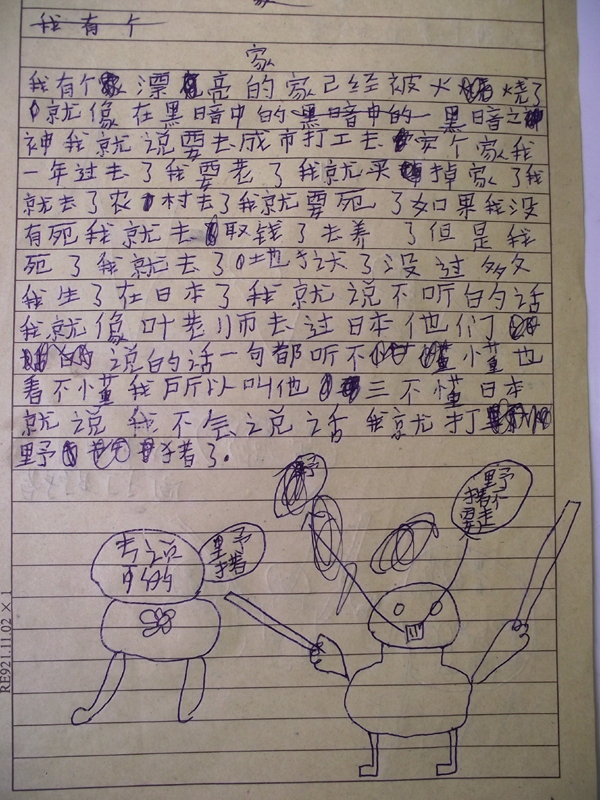 我有个
家
我有个漂亮的家已经被火烧了
就像在黑暗中的黑暗中的一黑暗之
神我就说要去成市打工去买个家我
一年过去了我要老了我就买掉家了我
就去了农村去了我就要死了如果我没
有死我就去取钱了去养了但是我
死了我就去了地狱了没过多久
我生了在日本了我就说不听的话
我就像叶老师去过日本他们
说的话一句都听不懂也
看不懂我所以叫他三不懂日本
就说我不会说话我就打
野猪了。
野
野猪不要走
野猪
RE921.11.02 × 1